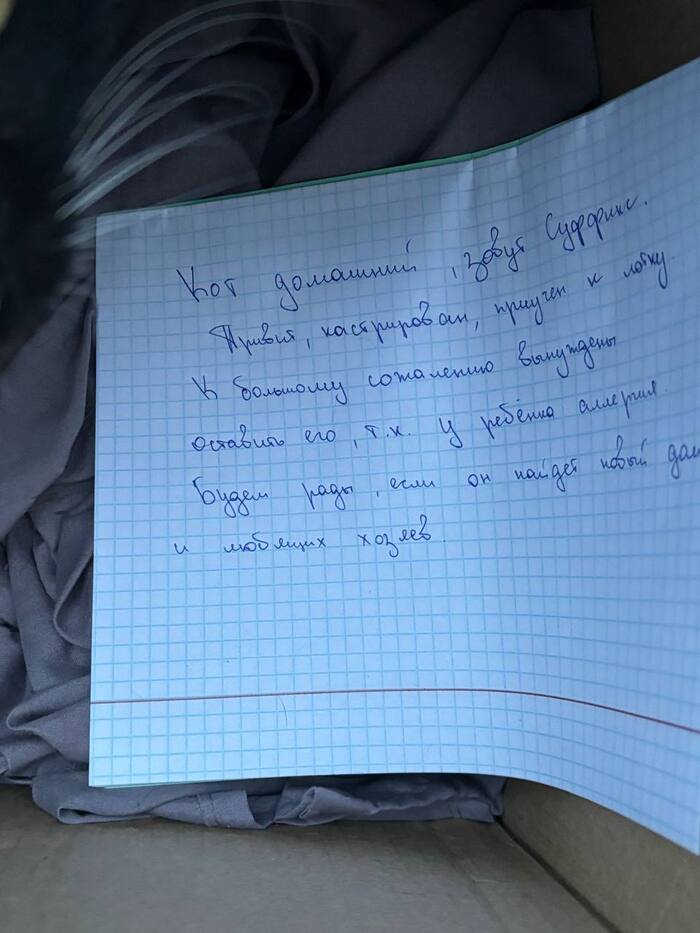 Кот домашний, зовут Суффикс.
Привит, кастрирован, приучен к лотку.
К большому сожалению вынуждены
оставить его, т.к. у ребёнка аллергия.
Будем рады, если он найдет новый дом
и любящих хозяев.